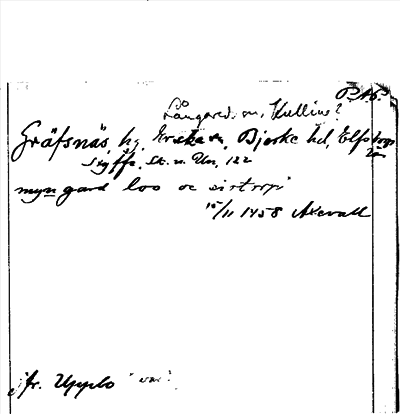 P.A.S.
Långared sn, Kullings?
Gräfsnäs, hg, Erska sn, Bjerke hd, Elfsborgs
län
Styffe, Sk. u. Un., 122
myn gard loo oc
15/11 1458 Axevall
jfr. Upplo